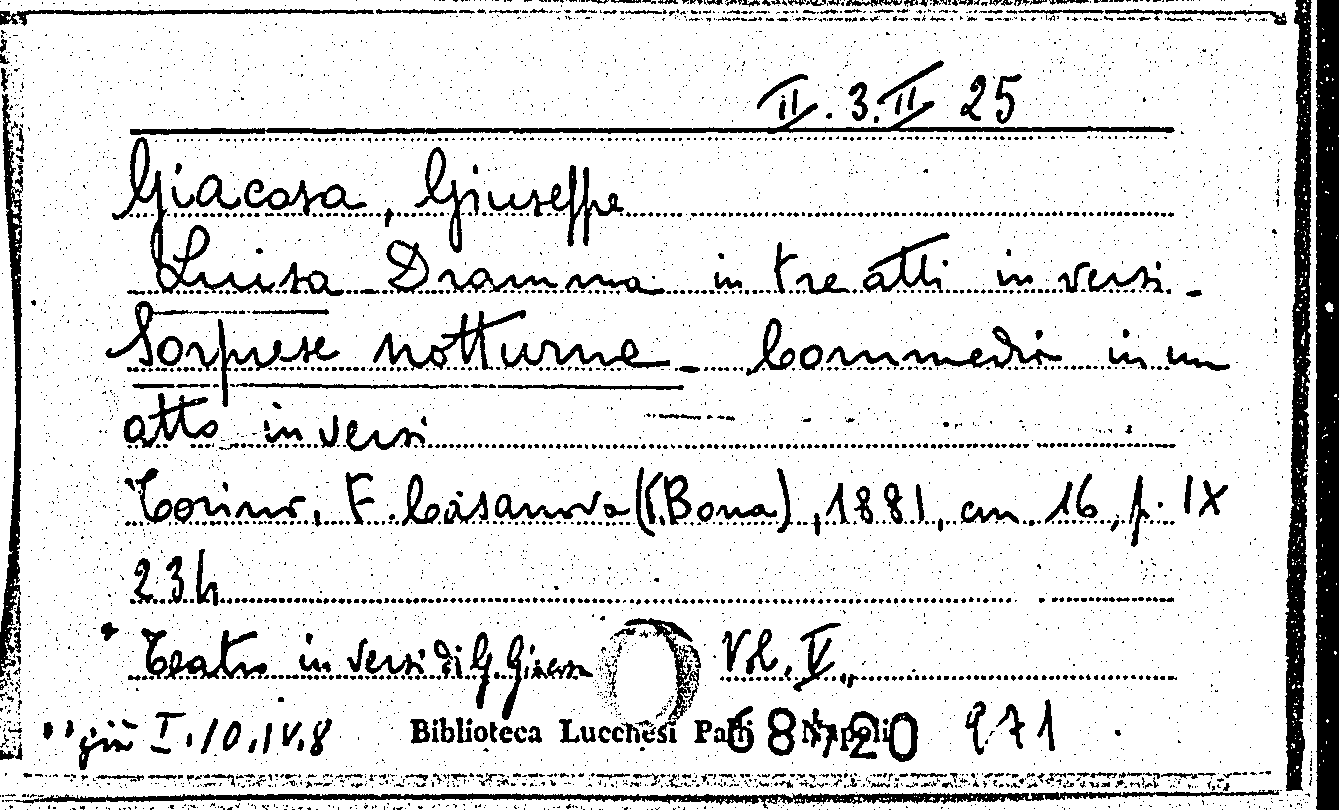 II. 3. II 25
Giacosa, Giuseppe
Luisa Dramma in tre atti in versi -
Sorprese notturne - Commedia in un
atto in versi
Torino, F. Casanova (V. Bona), 1881, cm. 16, p. IX
234
" Teatro in versi di G. Giacosa Vol. V "
già I.10.IV.8 Biblioteca Lucchesi Palli Napoli 971